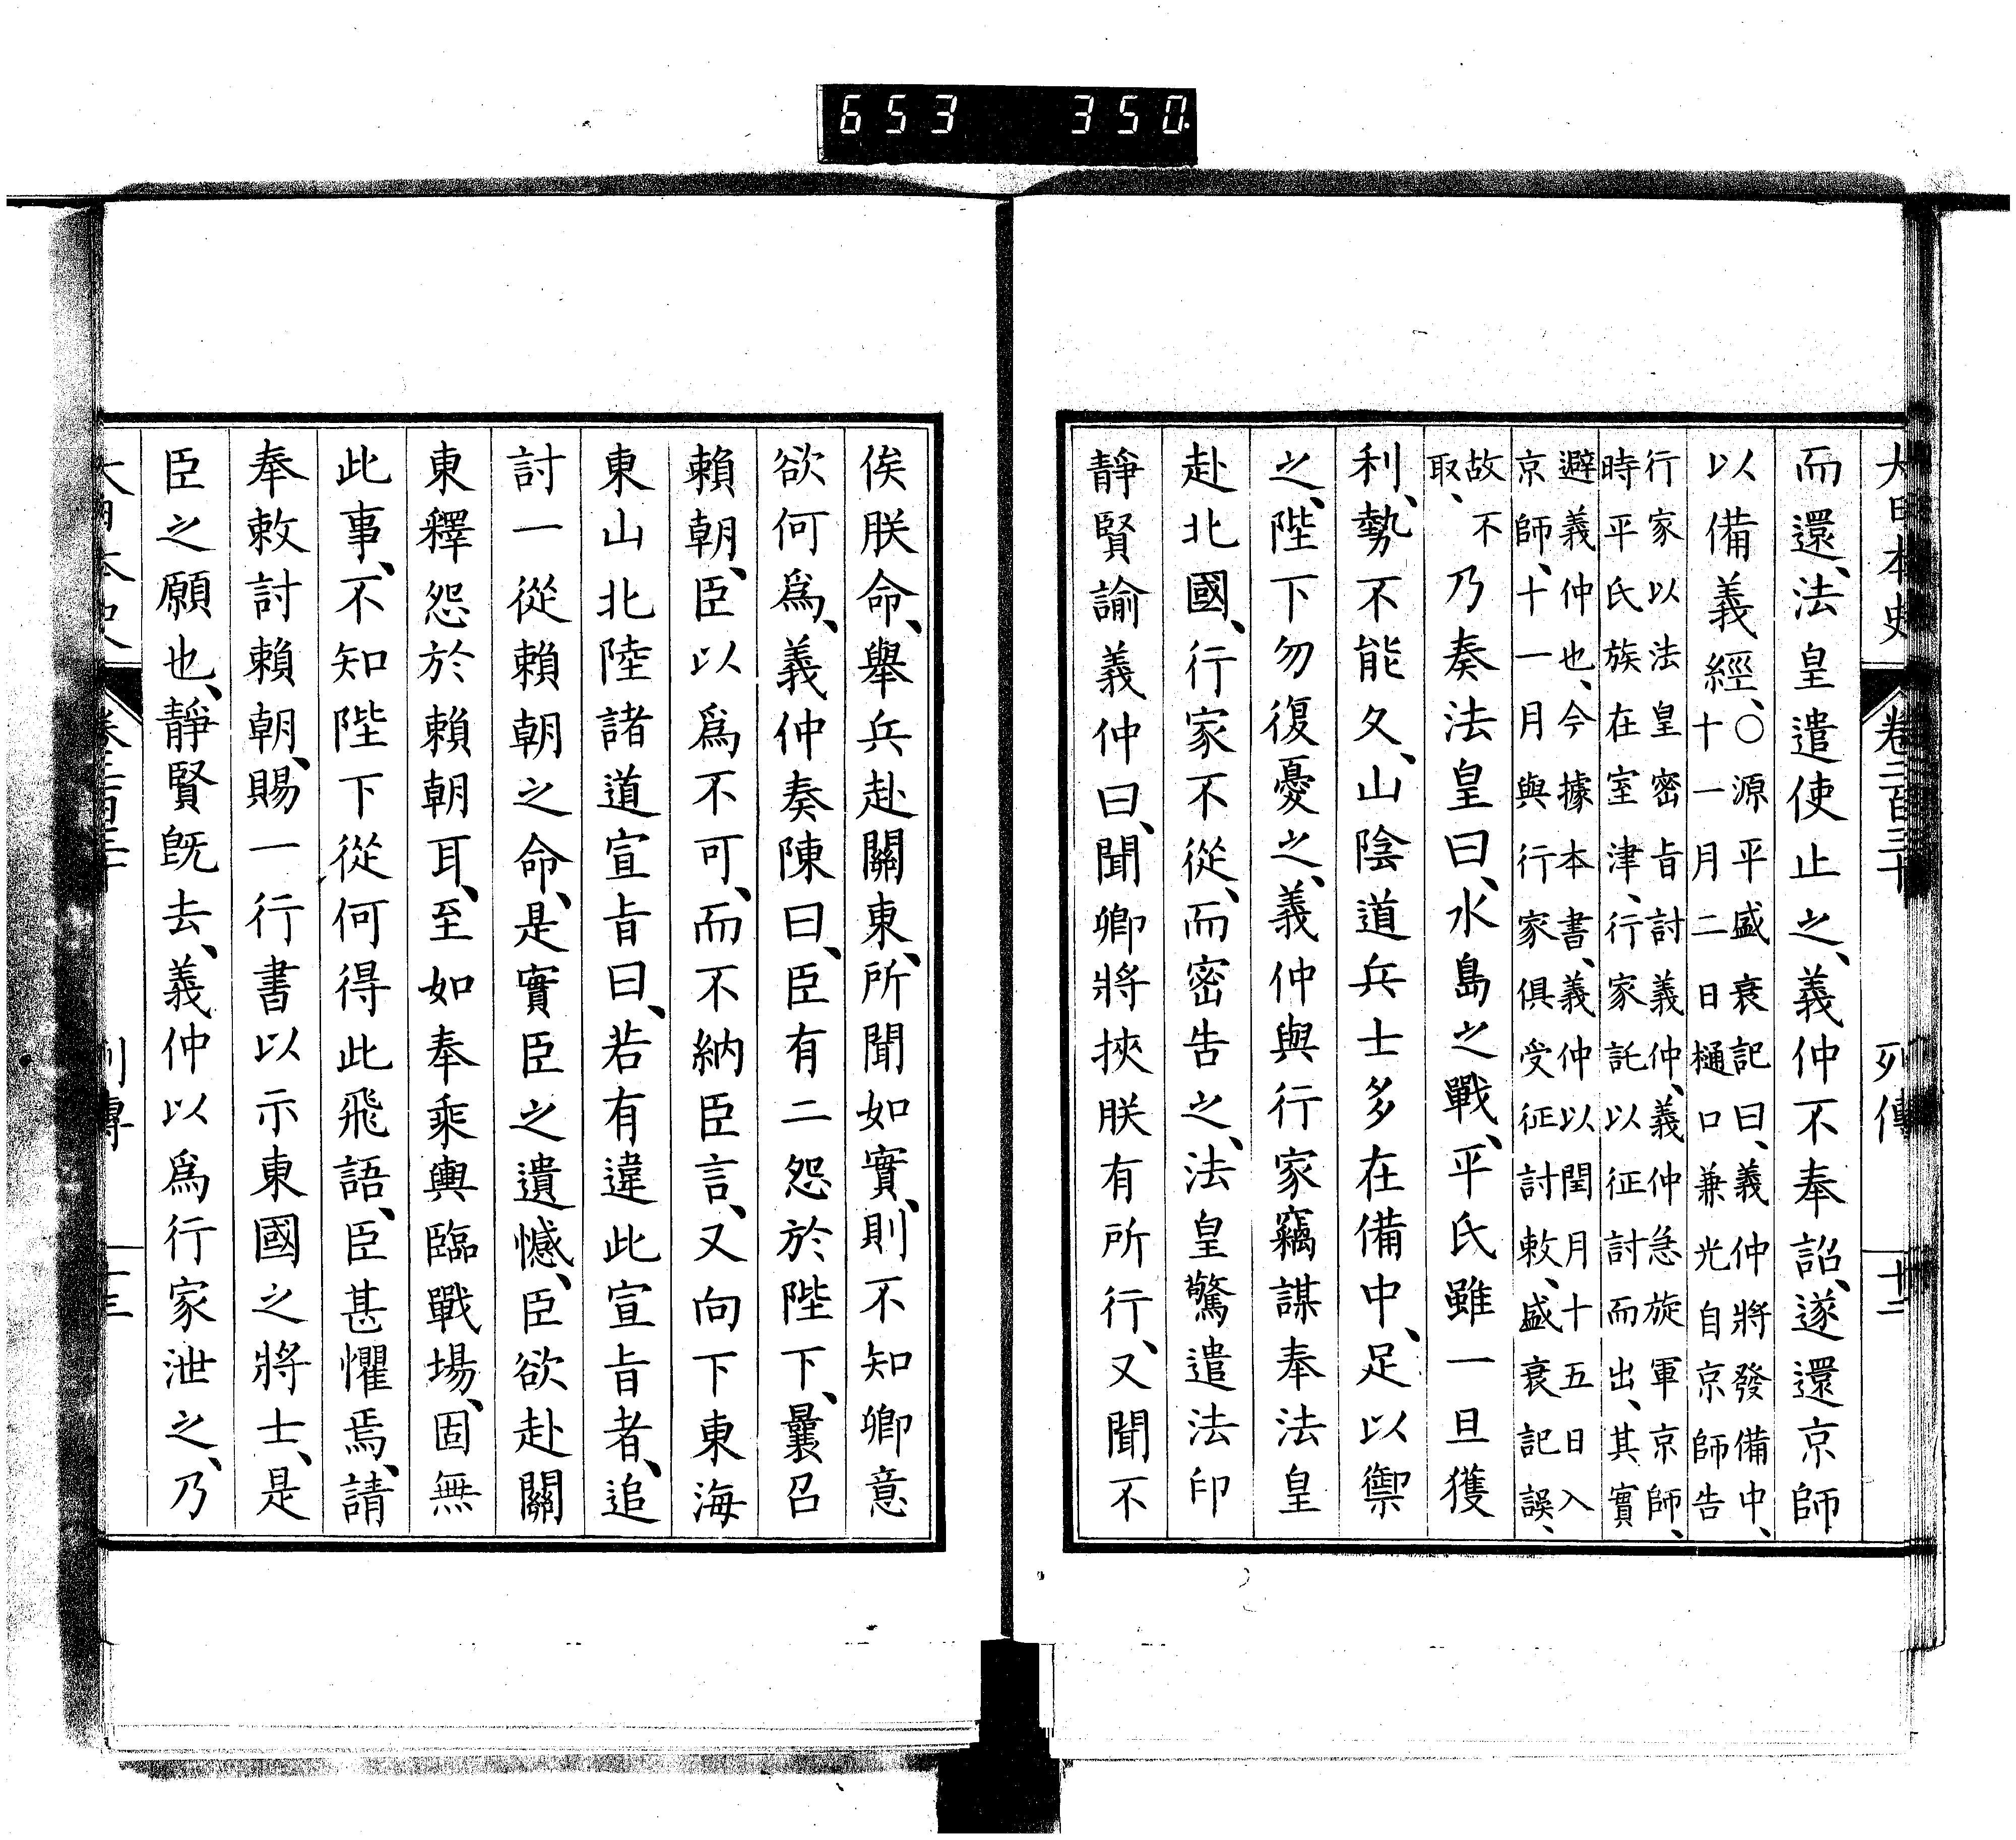 653 350
大日本史 卷二百三十 列傳 十二
而還、法皇遣使止之、義仲不奉詔、遂還京師
以備義經、〇源平盛衰記曰、義仲將發備中、
十一月二日樋口兼光自京師告
行家以法皇密旨討義仲、義仲急旋軍京師、
時平氏族在室津、行家託以征討而出、其實
避義仲也、今據本書、義仲以閏月十五日入
京師、十一月與行家俱受征討敕、盛衰記誤、
故不
取、
乃奏法皇曰、水島之戰、平氏雖一旦獲
利、勢不能久、山陰道兵士多在備中、足以禦
之、陛下勿復憂之、義仲與行家竊謀奉法皇
赴北國、行家不從、而密告之、法皇驚遣法印
靜賢諭義仲曰、聞卿將挾朕有所行、又聞不
俟朕命、舉兵赴關東、所聞如實、則不知卿意
欲何爲、義仲奏陳曰、臣有二怨於陛下、曩召
賴朝、臣以爲不可、而不納臣言、又向下東海
東山北陸諸道宣旨曰、若有違此宣旨者、追
討一從賴朝之命、是實臣之遺憾、臣欲赴關
東釋怨於賴朝耳、至如奉乘輿臨戰場、固無
此事、不知陛下從何得此飛語、臣甚懼焉、請
奉敕討賴朝、賜一行書以示東國之將士、是
臣之願也、靜賢既去、義仲以爲行家泄之、乃
大日本史 卷二百三十 列傳 十三